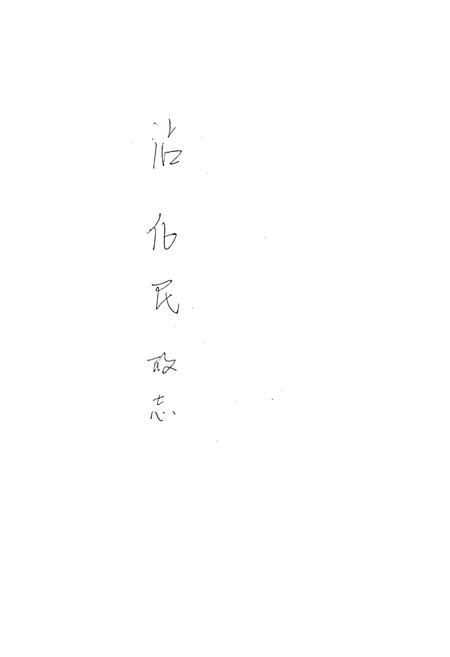 沾化民政志